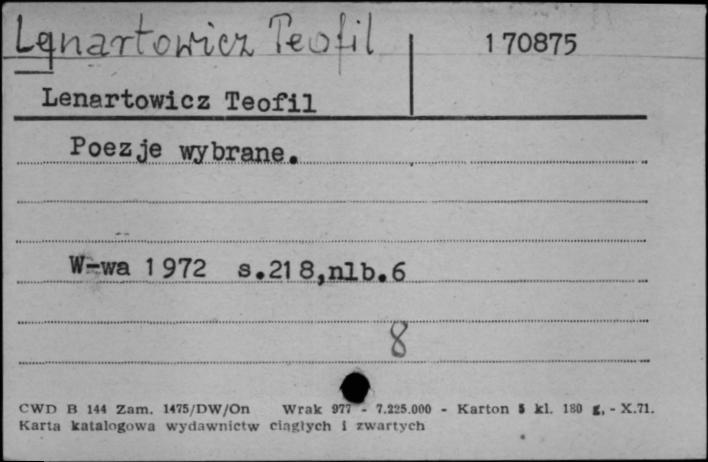 Lenartowicz Teofil 170875
Lenartowicz Teofil
Poezje wybrane.
W-wa 1972 s.218,nlb.6
8
CWD B 144 Zam. 1475/DW/On Wrak 977 - 7.225.000 - Karton 5 kl. 180 g, - X.71.
Karta katalogowa wydawnictw ciągłych i zwartych